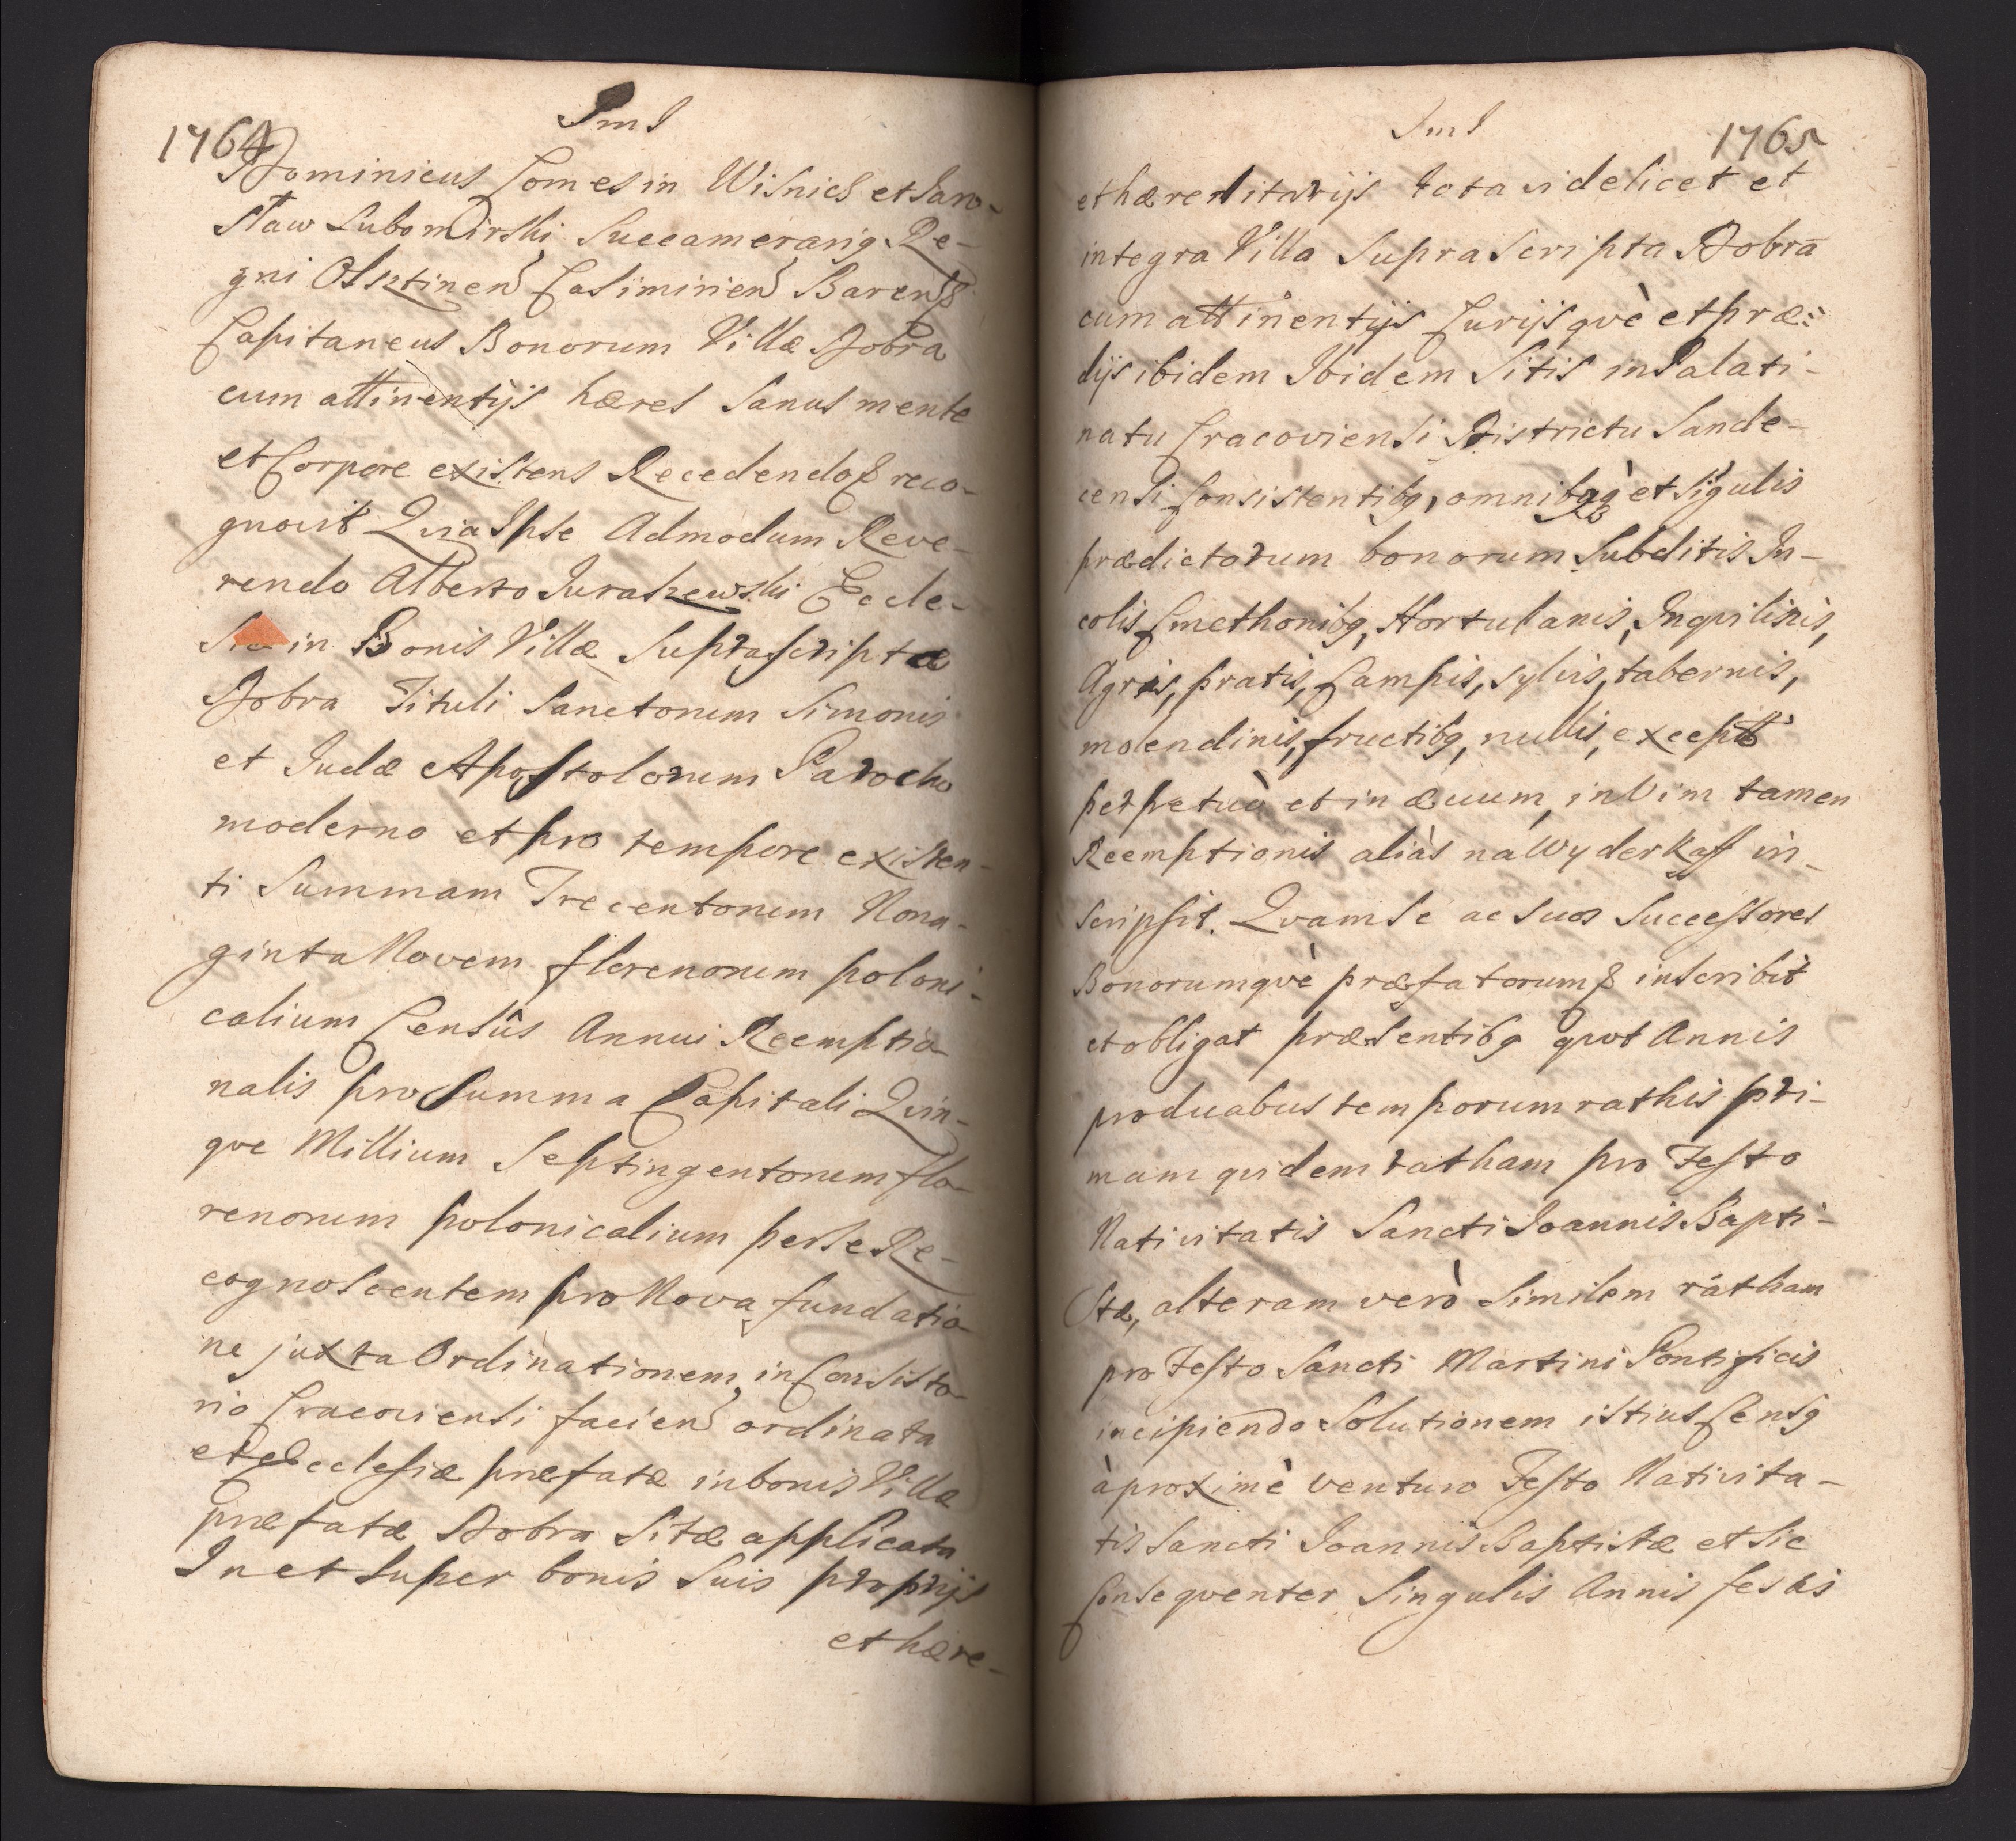 1764
SmJ
Dominicus Comes in Wisnicz et Jaro-
sław Lubomirski Succamerarig Re-
gni Olsztinen Casimirien Barens
Capitaneus Bonorum Villæ Dobra
cum attinentijs hæres Sanus mente
et Corpore existens Recedendo& reco-
gnovit Qvia Ipse Admodum Reve-
rendo Alberto Juraszewski Eccle-
in Bonis Villæ Suprascriptæ
Dobra Tituli Sanctorum Simonis
et Judæ Apostolorum Parocho
moderno et pro tempore existen-
ti Summam Trecentorum Nona-
ginta Novem florenorum poloni-
calium Censûs Annui Reemptio-
nalis pro Summa Capitali Qvin-
qve Millium Septingentorum flo-
renorum polonicalium per se Re-
cognoscentem pro Nova fundatio-
ne juxta Ordinationem, in Consisto-
rio Cracoviensi facien ordinata
et Ecclesiæ præfatæ in bonis Villæ
præfatæ Dobra Sitæ applicata
In et Super bonis Suis proprijs
et hære-
SmJ
1765
et hæreditarijs tota videlicet et
integra Villa Supra Scripta Dobra
cum attinentijs Curijsqvè et præ:
dijs ibidem Ibidem Sitis in Palati-
natu Cracoviensi Districtu Sande-
censi Consistentibq, omnibqqè et Sigulis
prædictorum bonorum Subditis In-
colis Cmethonibq, Hortulanis, Inqvilinis,
Agris, pratis, Campis, sylvis, tabernis,
molendinis, fructibq, nullis, except
perpetuò et in ævum, in Vim tamen
Reemptionis aliàs na Wyderkaff in-
scripsit. Qvam Se ac Suos Successores
Bonorumqvè præfatorum& inscribit
et obligat præsentibq qvot Annis
pro duabus temporum rathis pri-
mam qvidem ratham pro Festo
Nativitatis Sancti Joannis Bapti-
stæ, alteram verò Similem ratham
pro Festo Sancti Martini Pontificis
incipiendo Solutionem istius Censq
à proximè venturo Festo Nativita-
tis Sancti Joannis Baptistæ et Sic
Conseqventer Singulis Annis festis